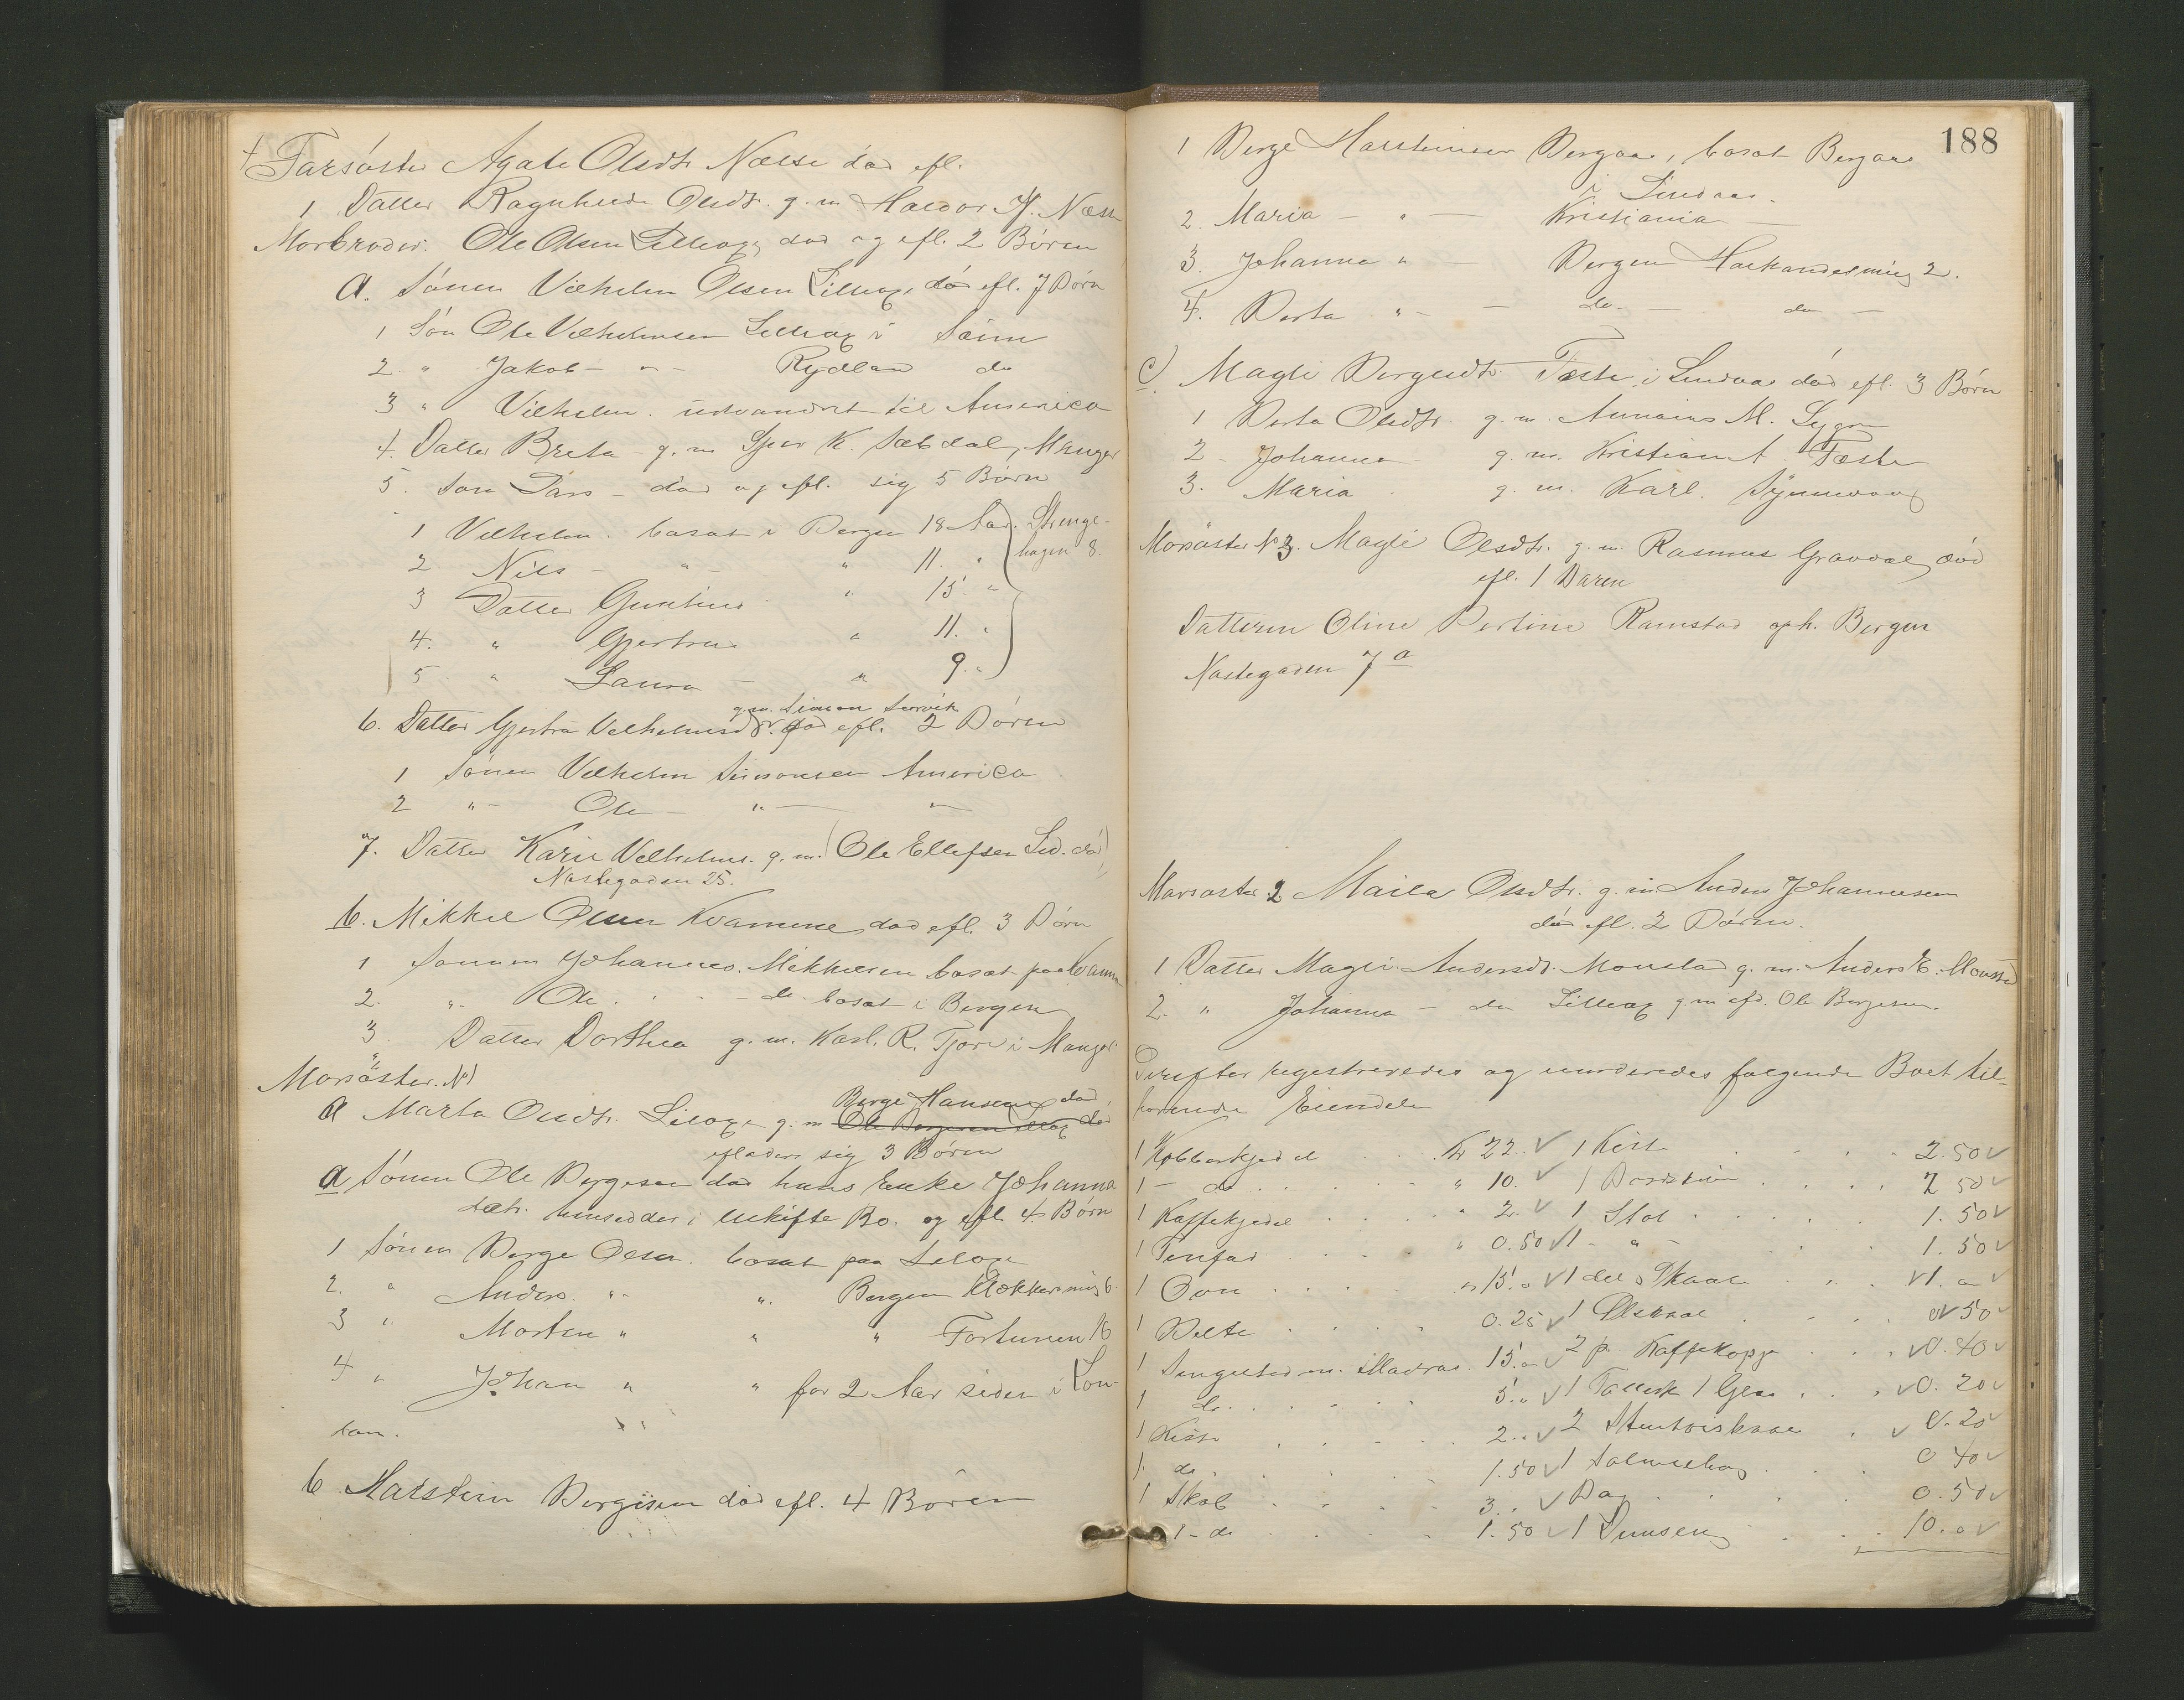 Farsöster Agate Olsdtr. Næsse död efl.
1 Datter Ragnhilde Olsdt. g. m Haldor H. Næsse
Morbroder. Ole Olsen Lilleax, död og efl. 2 Börn
a. Sönen Vilhelm Olsen Lilleax död efl. 7 Börn
1 Sön Ole Vilhelmsen Lilleax i Sæim
2. " Jakob - " - Rydland do
3 " Vilhelm. udvandret til America
4. Datter Breta - g. m K. Sæbdal, Manger
5. Sön Lars - död og efl. sig 5 Börn
1 Vilhelm. bosat i Bergen 18 Aar. Strenge-
2. Nils - " - " 11. " hagen 8.
3 Datter " 15. "
4. " Gjertru " 11. "
5 " Laura - " 9. "
g. m. Simon
6. Datter Gjertru Vilhelmsdtr. död efl. 2 Börn
1 Sönen Vilhelm Simonsen America
2 " - Ole - " - " -
7. Datter Kari Vilhelms. g. m. (Ole Ellefsen död)
Nöstegaden 25.
b. Mikkel Olsen Kvamme död efl. 3 Börn
1 Sönnen Johannes. Mikkelsen bosat paa Kvamme
2. " Ole. - - do bosat i Bergen
3. Datter Dorthea g. m. Karl. R. Tjore i Manger
Morsöster. N 1
Börge Hansen död
a Marta Olsdtr. Lileax g. m Ole Börgesen Lileax död
eflader sig 3 Börn
a Sönen Ole Börgesen död hans Enke Johanna
hensidder i Uskifte Bo. og efl. 4 Börn
1 Sönen Börge Olsen. bosat paa Lileax
2. " Anders. " - ". Bergen Klokkersmug 6.
3 " Morten " " " Fortunen 16
4 " Johan " " for 2 Aar siden i Lon-
don.
b Halstein Börgesen död efl. 4 Börn
188
1 Börge Halsteinsen Bergaas, bosat Bergaas
i Lindaas.
2. Maria - " - Kristiania
3. Johanna " - Bergen 2.
4. Berta " - - do - do -
c) Magli Börgesdtr. Fæste i Lindaas död efl. 3 Börn
1 Berta Olsdtr. g. m. M. Lygre
2 - Johanna - g. m. Kristian A. Fæste
3. Maria. g. m. Karl.
Morsöster No 3. Magli Olsdtr. g. m. Rasmus Gravdal, död
efl. 1 Barn
Datteren Oline Bertine Ramstad oph. Bergen
Nöstegaden 7 a
Morsöster 2 Maila Olsdtr. g. m Anders Johannesen
död efl. 2 Börn.
1 Datter Magli Andersdtr. Monstad g. m. Anders E. Monstad
2. " Johanna - do Lilleax g. m afd. Ole Börgesen.
Derefter registreredes og vurderedes følgende Boet til-
hørende Eiendele
1 Kobberkjedel . . Kr 22. ✓ 1 Kiste . . . 2. 50 ✓
1 - do . . . . " 10. ✓ 1 . . . . 2 50 ✓
1 Kaffekjedel . . . " 2. ✓ 1 Stol . . . . 1. 50 ✓
1 Tinfad . . . " 0. 50 ✓ 1 - " - . . 1. 50 ✓
1 Ovn . . . . " 15. " ✓ 1 del Skaale . . ✓ 1. " ✓
1 Bøtte . . . . 0. 25 ✓ 1 Ølskaal . . . 0 ✓ 50 ✓
1 Sengested m. Madras. 15. " ✓ 2 p. Kaffekopp . . . ✓ 0. 40 ✓
1 do. . . . . 5. " ✓ 1 Tallerk 1 Glas . . . ✓ 0. 20 ✓
1 Kiste . . . . 2. " ✓ 2 . ✓ 0. 20 ✓
1. do. . . . . 1. 50 ✓ 1 Salmebog . . . 0 40 ✓
1 Skab . . . . 3. " ✓ . . . 0. 50 ✓
1 - do . . . . 1. 50 ✓ 1 . . . 10. " ✓